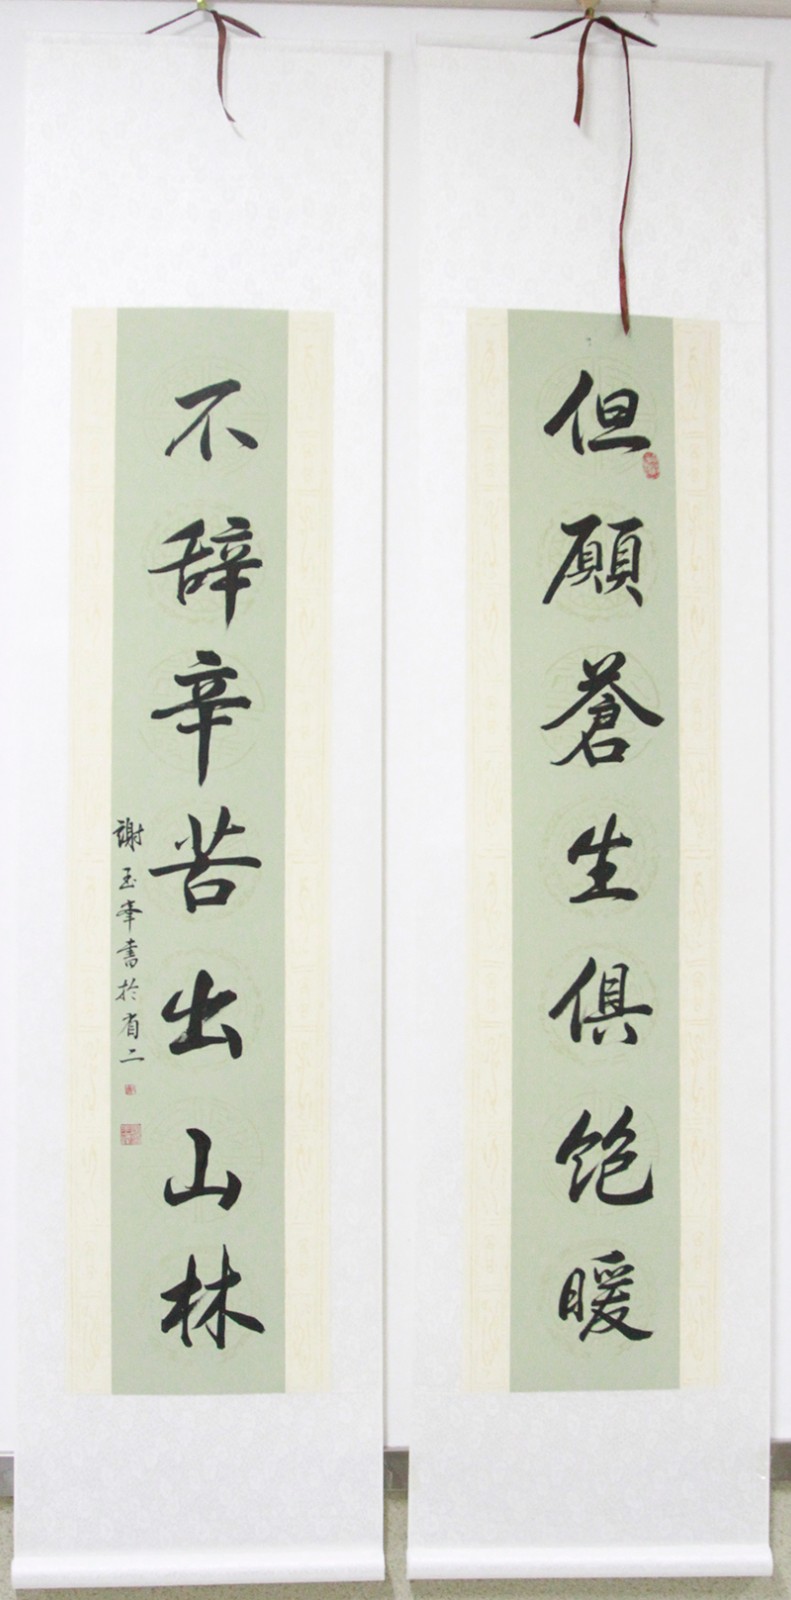 但願蒼生俱飽暖
不辞辛苦出山林
謝玉峯書於省二